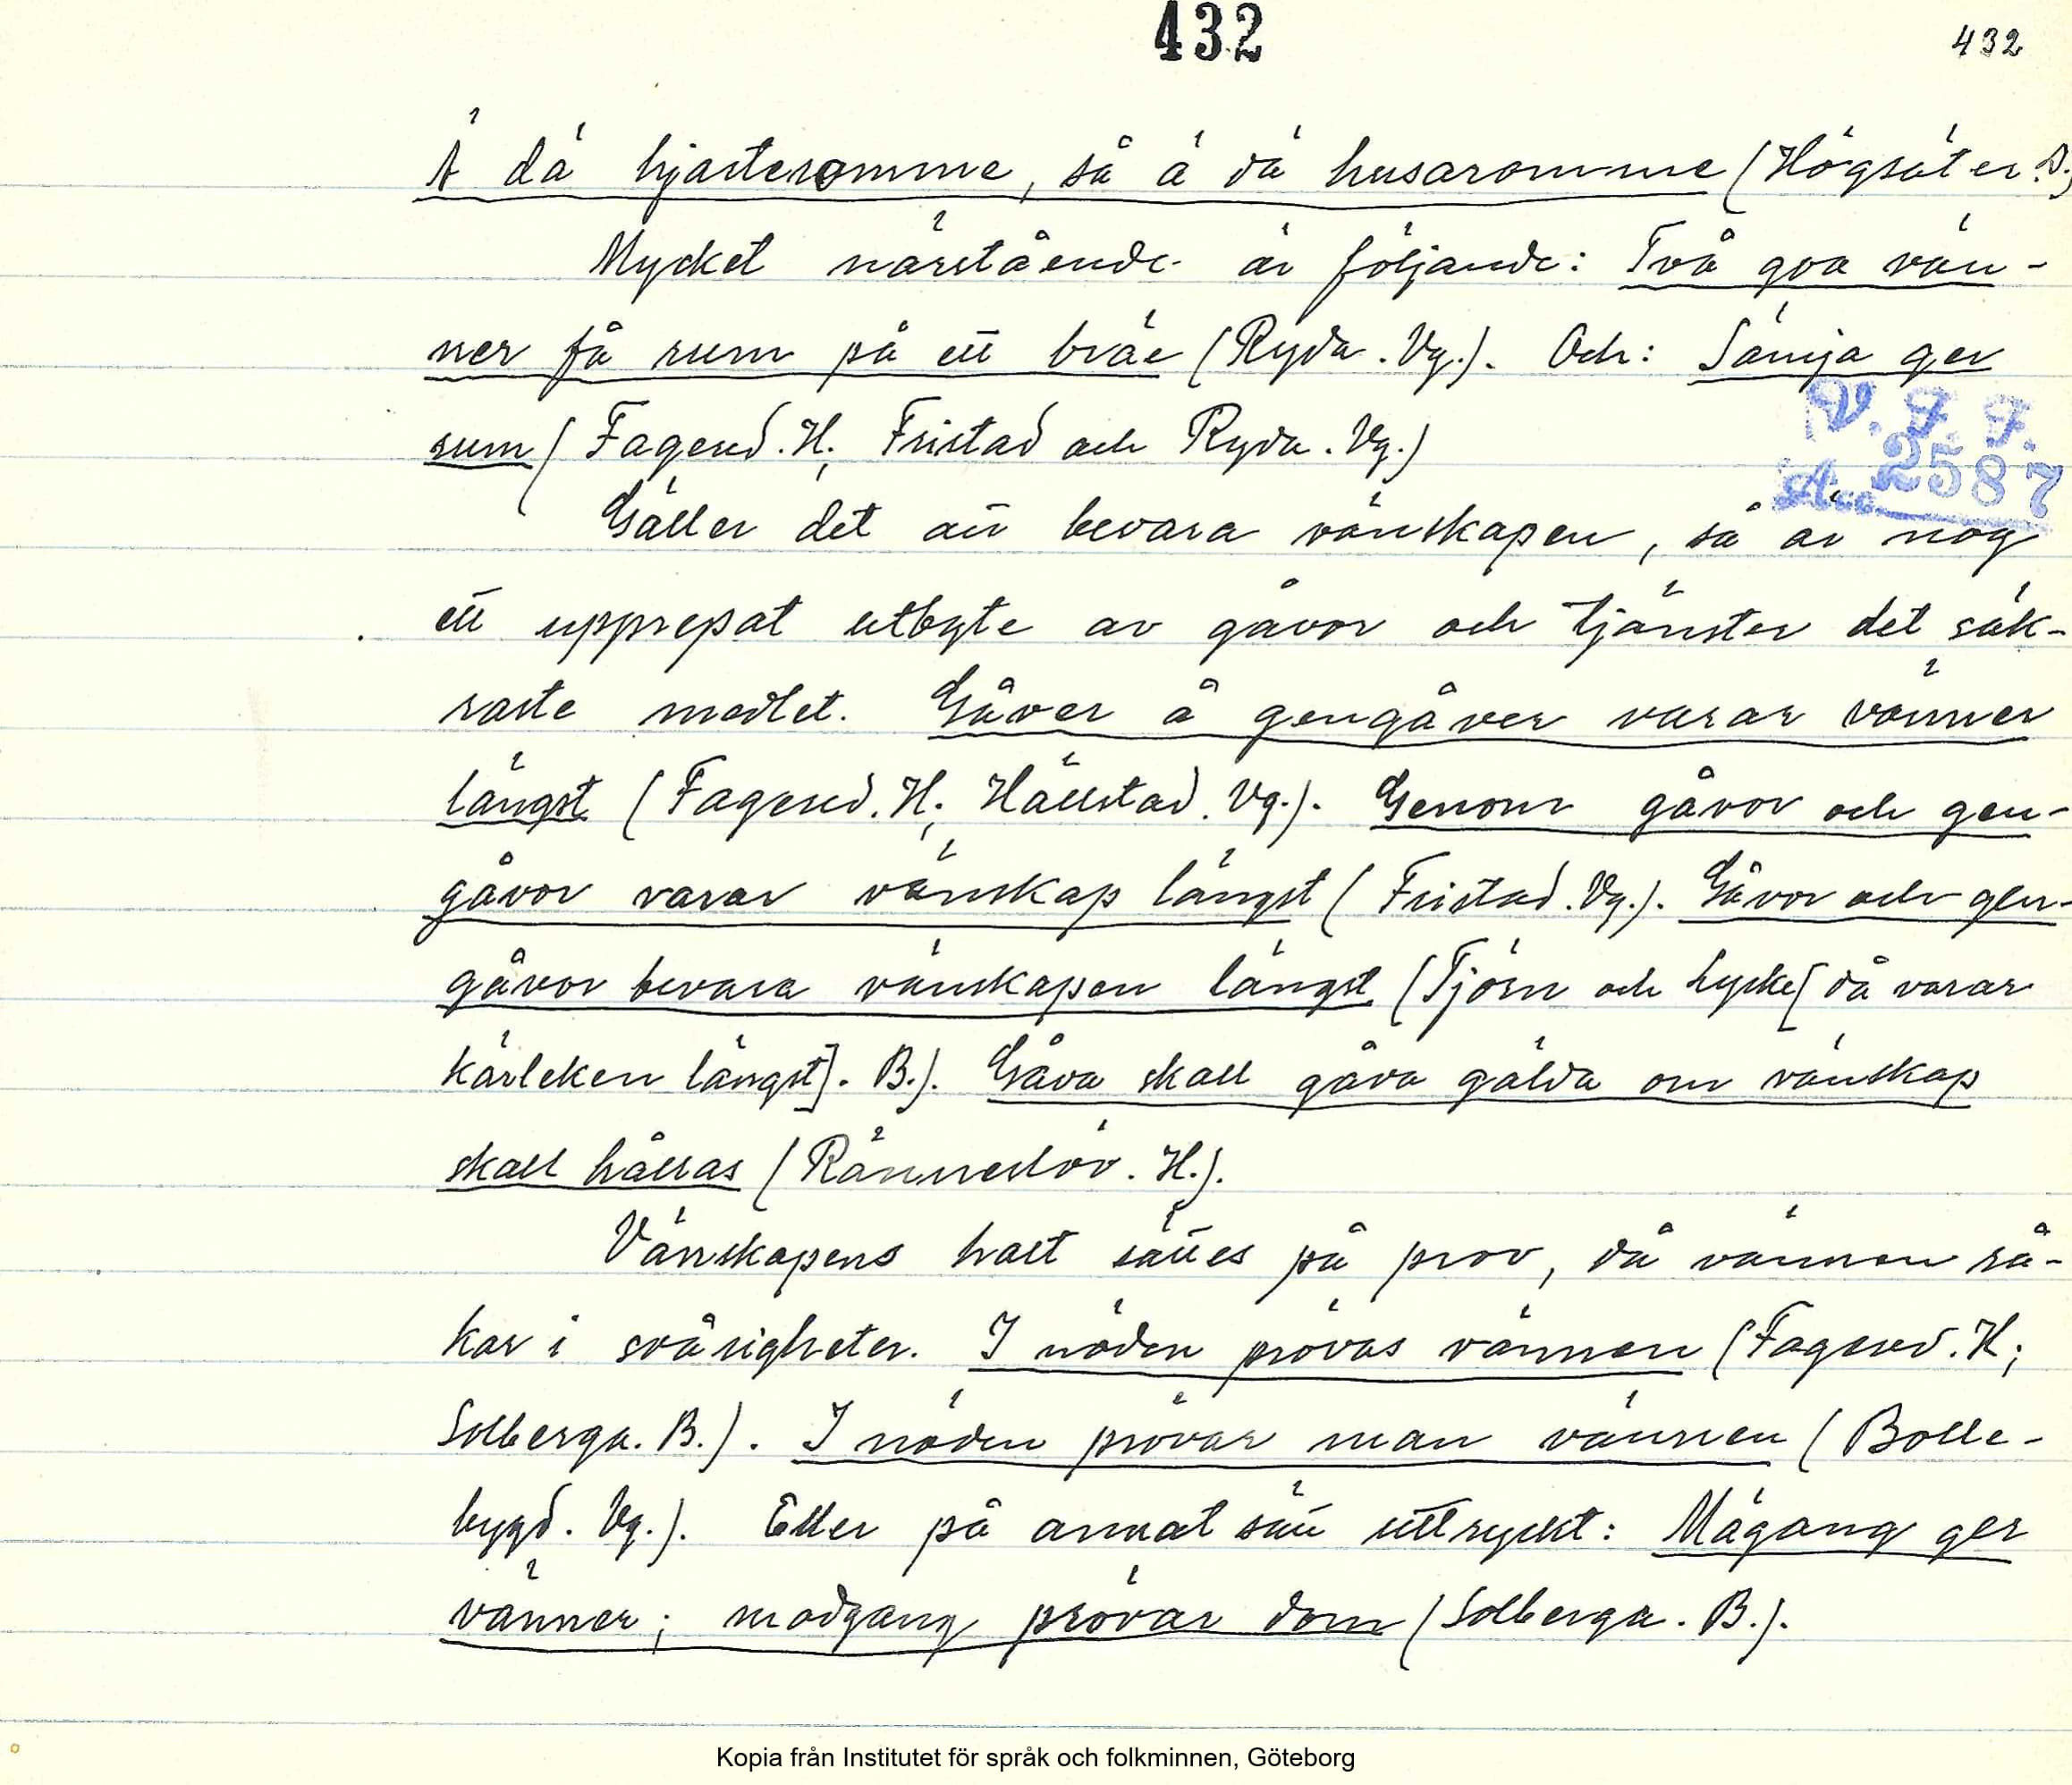 432
432
Ä dä hjarteromme, så ä dä husaromme (Högsäter. D.)
Mycket närstående är följande: Två goa vän-
ner få rum på ett bräe (Ryda. Vg.). Och: Sämja ger
rum (Fagered. H; Fristad och Ryda. Vg.)
V. F. F.
Acc. 2587
Gäller det att bevara vänskapen, så är nog
ett upprepat utbyte av gåvor och tjänster det säk-
raste medlet. Gåver å gengåver varar vänner
längst (Fagered. H; Hällstad. Vg.). Genom gåvor och gen-
gåvor varar vänskap längst (Fristad. Vg.). Gåvor och gen-
gåvor bevara vänskapen längst (Tjörn och Lycke [då varar
kärleken längst]. B.). Gåva skall gåva gälda om vänskap
skall hållas (Ränneslöv. H.).
Vänskapens halt sättes på prov, då vännen rå-
kar i svårigheter. I nöden prövas vännen (Fagered. H;
Solberga. B.). I nöden prövar man vännen (Bolle-
bygd. Vg.). Eller på annat sätt uttryckt: Mägang ger
vänner; modgang prövar dom (Solberga. B.).
Kopia från Institutet för språk och folkminnen, Göteborg